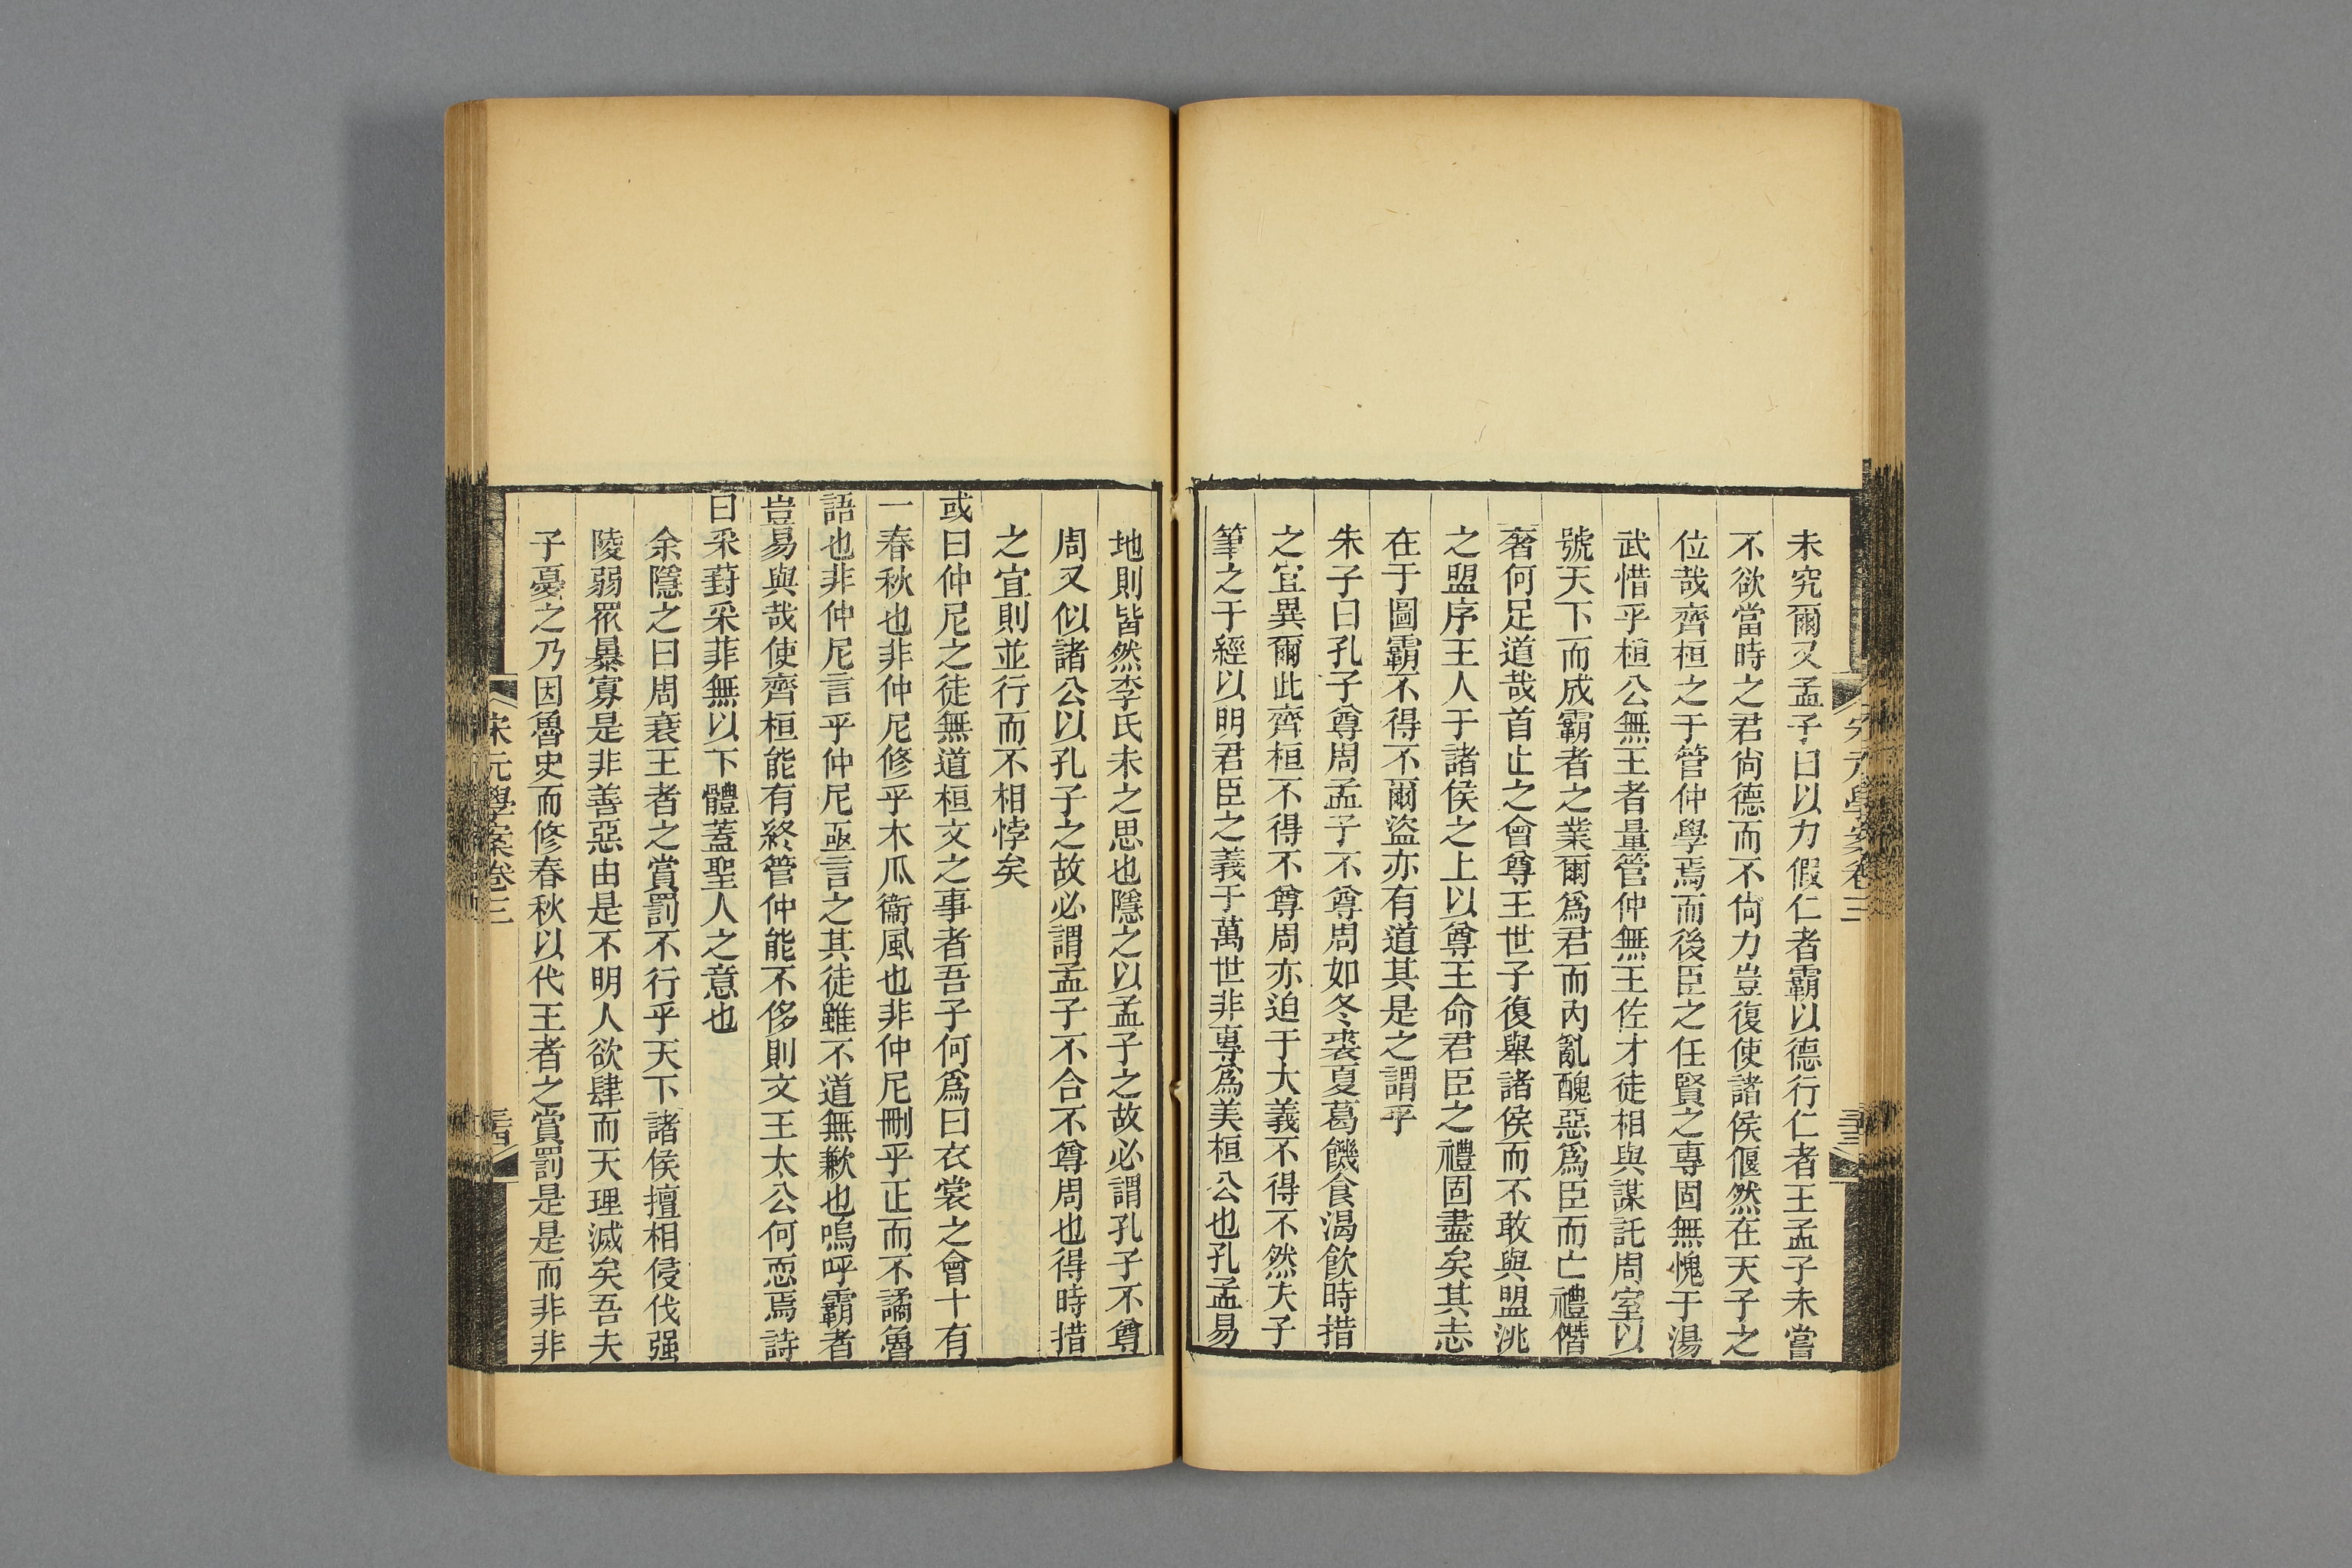 未究爾又孟子曰以力假仁者霸以德行仁者王孟子未嘗
不欲當時之君尙德而不尙力豈復使諸侯偃然在天子之
位哉齊桓之于管仲學焉而後臣之任賢之專固無愧于湯
武惜乎桓公無王者量管仲無王佐才徒相與謀託周室以
號天下而成霸者之業爾爲君而內亂醜惡爲臣而亡禮僭
奢何足道哉首止之會尊王世子復舉諸侯而不敢與盟洮
之盟序王人于諸侯之上以尊王命君臣之禮固盡矣其志
在于圖霸不得不爾盜亦有道其是之謂乎
朱子曰孔子尊周孟子不尊周如冬裘夏葛饑食渴飲時措
之宜異爾此齊桓不得不尊周亦迫于大義不得不然夫子
筆之于經以明君臣之義于萬世非專爲美桓公也孔孟易
地則皆然李氏未之思也隱之以孟子之故必謂孔子不尊
周又似諸公以孔子之故必謂孟子不合不尊周也得時措
之宜則並行而不相悖矣
或曰仲尼之徒無道桓文之事者吾子何爲曰衣裳之會十有
一春秋也非仲尼修乎木瓜衞風也非仲尼刪乎正而不譎魯
語也非仲尼言乎仲尼亟言之其徒雖不道無歉也嗚呼霸者
豈易與哉使齊桓能有終管仲能不侈則文王太公何恧焉詩
曰采葑采菲無以下體蓋聖人之意也
余隱之曰周衰王者之賞罰不行乎天下諸侯擅相侵伐强
陵弱衆暴寡是非善惡由是不明人欲肆而天理滅矣吾夫
子憂之乃因魯史而修春秋以代王者之賞罰是是而非非
宋元學案卷三